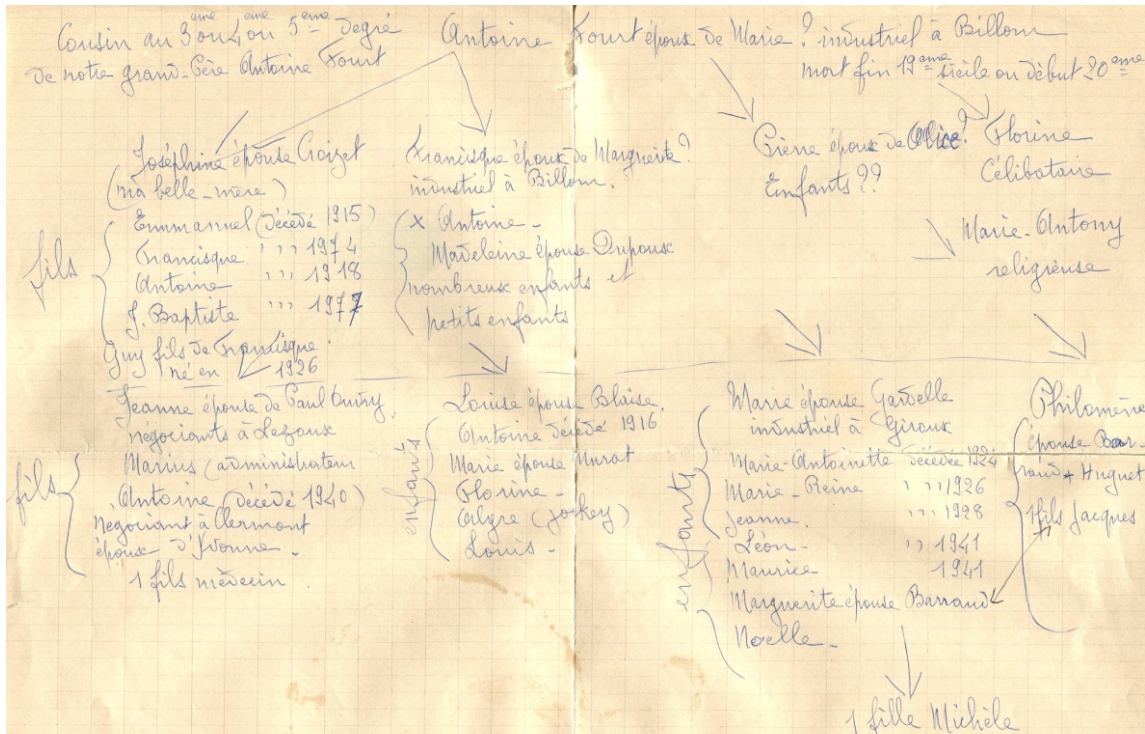 Cousin au 3eme ou 4eme ou 5eme degré
de notre grand-Père Antoine Fourt
Antoine Fourt époux de Marie ? industriel à Billom
mort fin 19eme siècle ou début 20eme
Joséphine épouse Croizet
(ma belle-mère)
fils
Emmanuel (décédé 1915)
Francisque ,,, 1974
Antoine ,,, 1918
J. Baptiste ,,, 1977
Guy fils de Francisque.
né en 1926
Francisque époux de Marguerite ?
industriel à Billom.
x Antoine -
Madeleine épouse Dupoux
nombreux enfants et
petits enfants
Pierre époux de Alice ?
Enfants ??
Florine
Célibataire
Marie-Antony
religieuse
Jeanne épouse de Paul
négociants à Lezoux
fils
Marius (administrateur
Antoine (décédé 1940)
négociant à Clermont
époux d'Yvonne -
1 fils médecin.
Louise épouse Blaise.
enfants
Antoine décédé 1916
Marie épouse Murat
Florine -
(jockey)
Louis -
Marie épouse Gardelle
industriel à Giroux
enfants
Marie-Antoinette décédée 1924
Marie-Reine ,, ,, 1926
Jeanne. ,,, 1928
Léon - ,, 1941
Maurice 1941
Marguerite épouse Barraud
Noelle -
1 fille Michèle
Philomène
épouse Bar-
raud + Huguet
1 fils Jacques